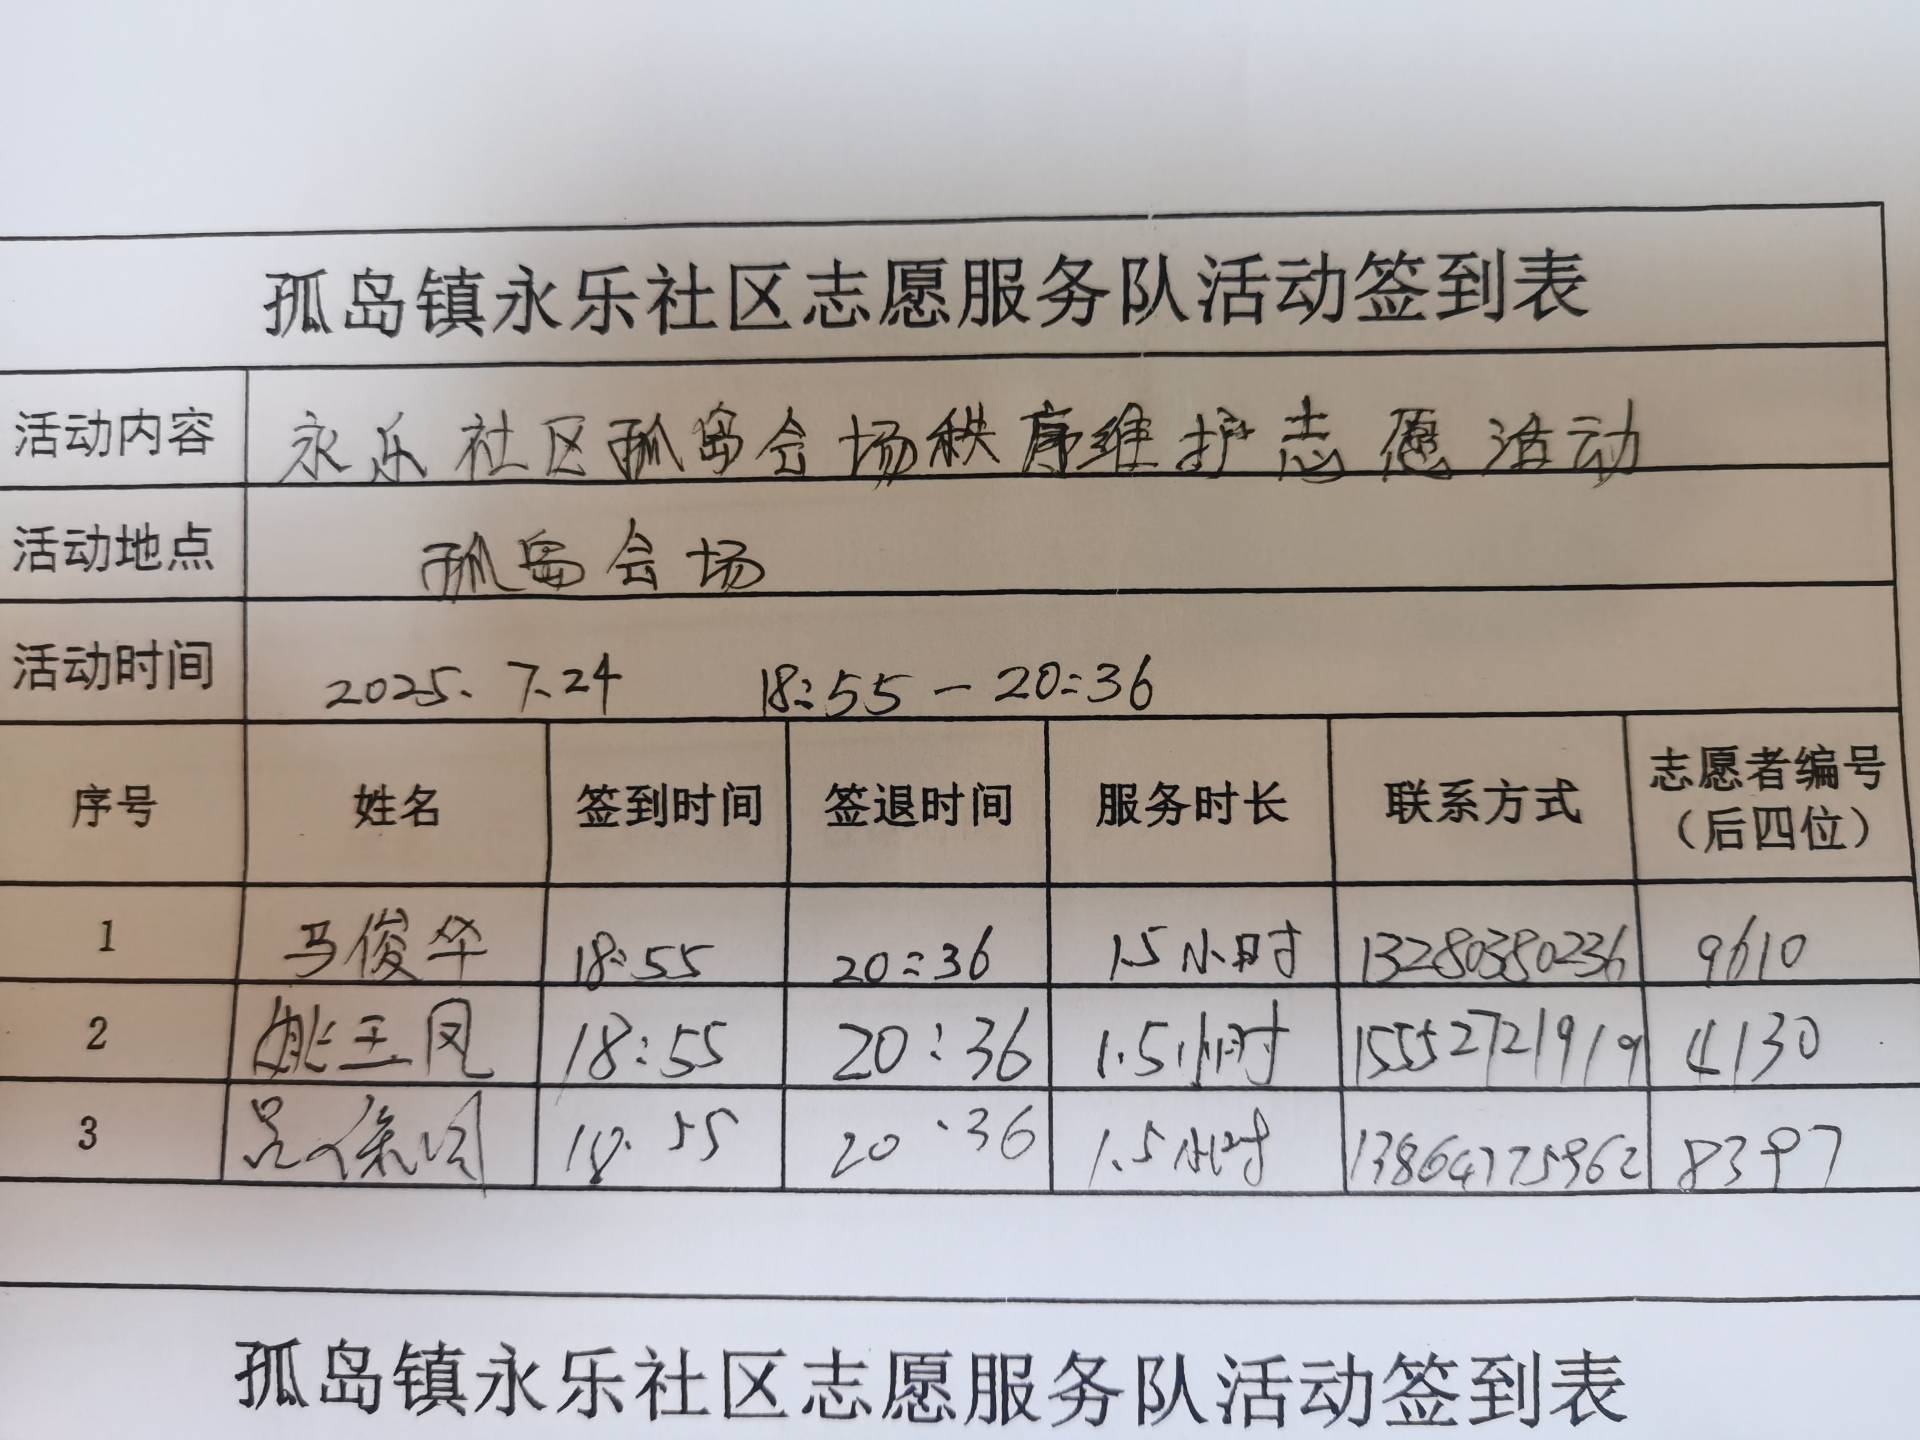 孤岛镇永乐社区志愿服务队活动签到表
活动内容 永乐社区孤岛会场秩序维护志愿活动
活动地点 孤岛会场
活动时间 2025.7.24 18:55-20:36
序号 姓名 签到时间 签退时间 服务时长 联系方式 志愿者编号
（后四位）
1 马俊华 18:55 20:36 1.5小时 13280380236 9610
2 姚玉凤 18:55 20:36 1.5小时 15552721919 4130
3 吕保 18:55 20:36 1.5小时 13864775962 8397
孤岛镇永乐社区志愿服务队活动签到表